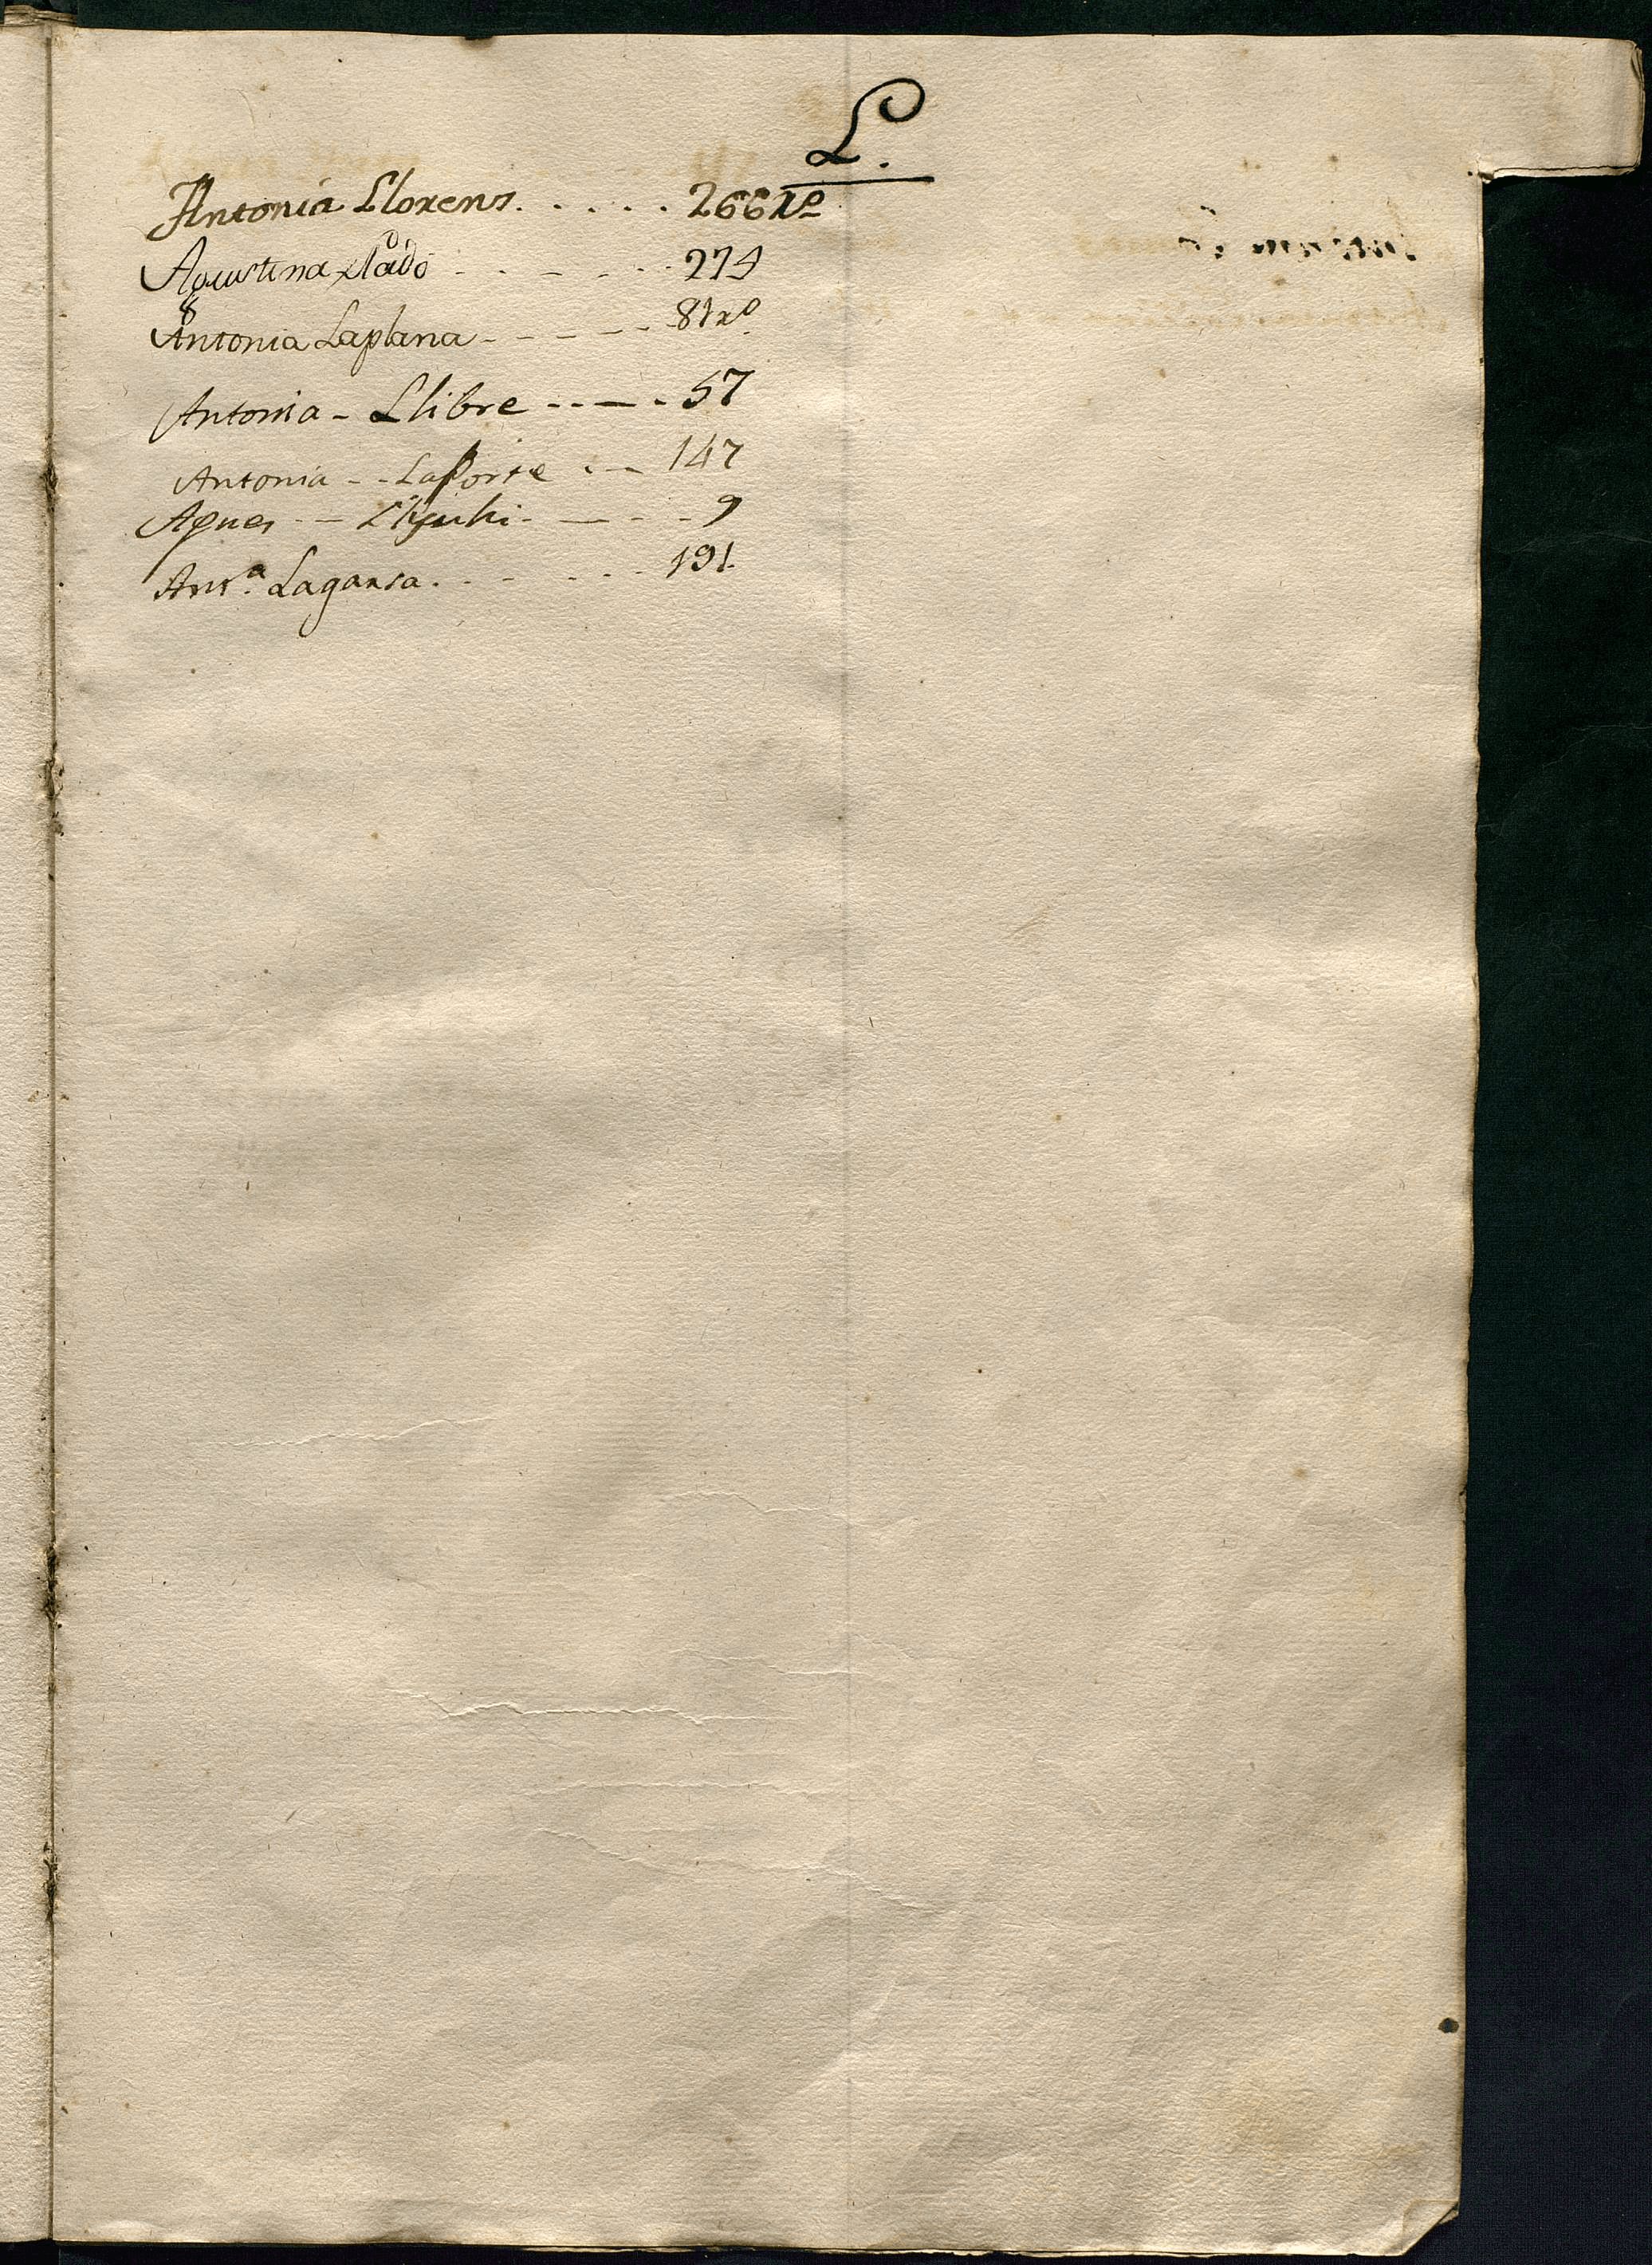 L.
Antonia Llorens. . . . . . 266 Rº
Agustina Lladó - - - - - - 279
Antonia Laplana - - - - - 81 rº
Antonia - Llibre - - - - - 57
Antonia - - LaPorte - - - 147
Agnes - - - - - - 9
Antª. Lagarsa. - - - - - 191.